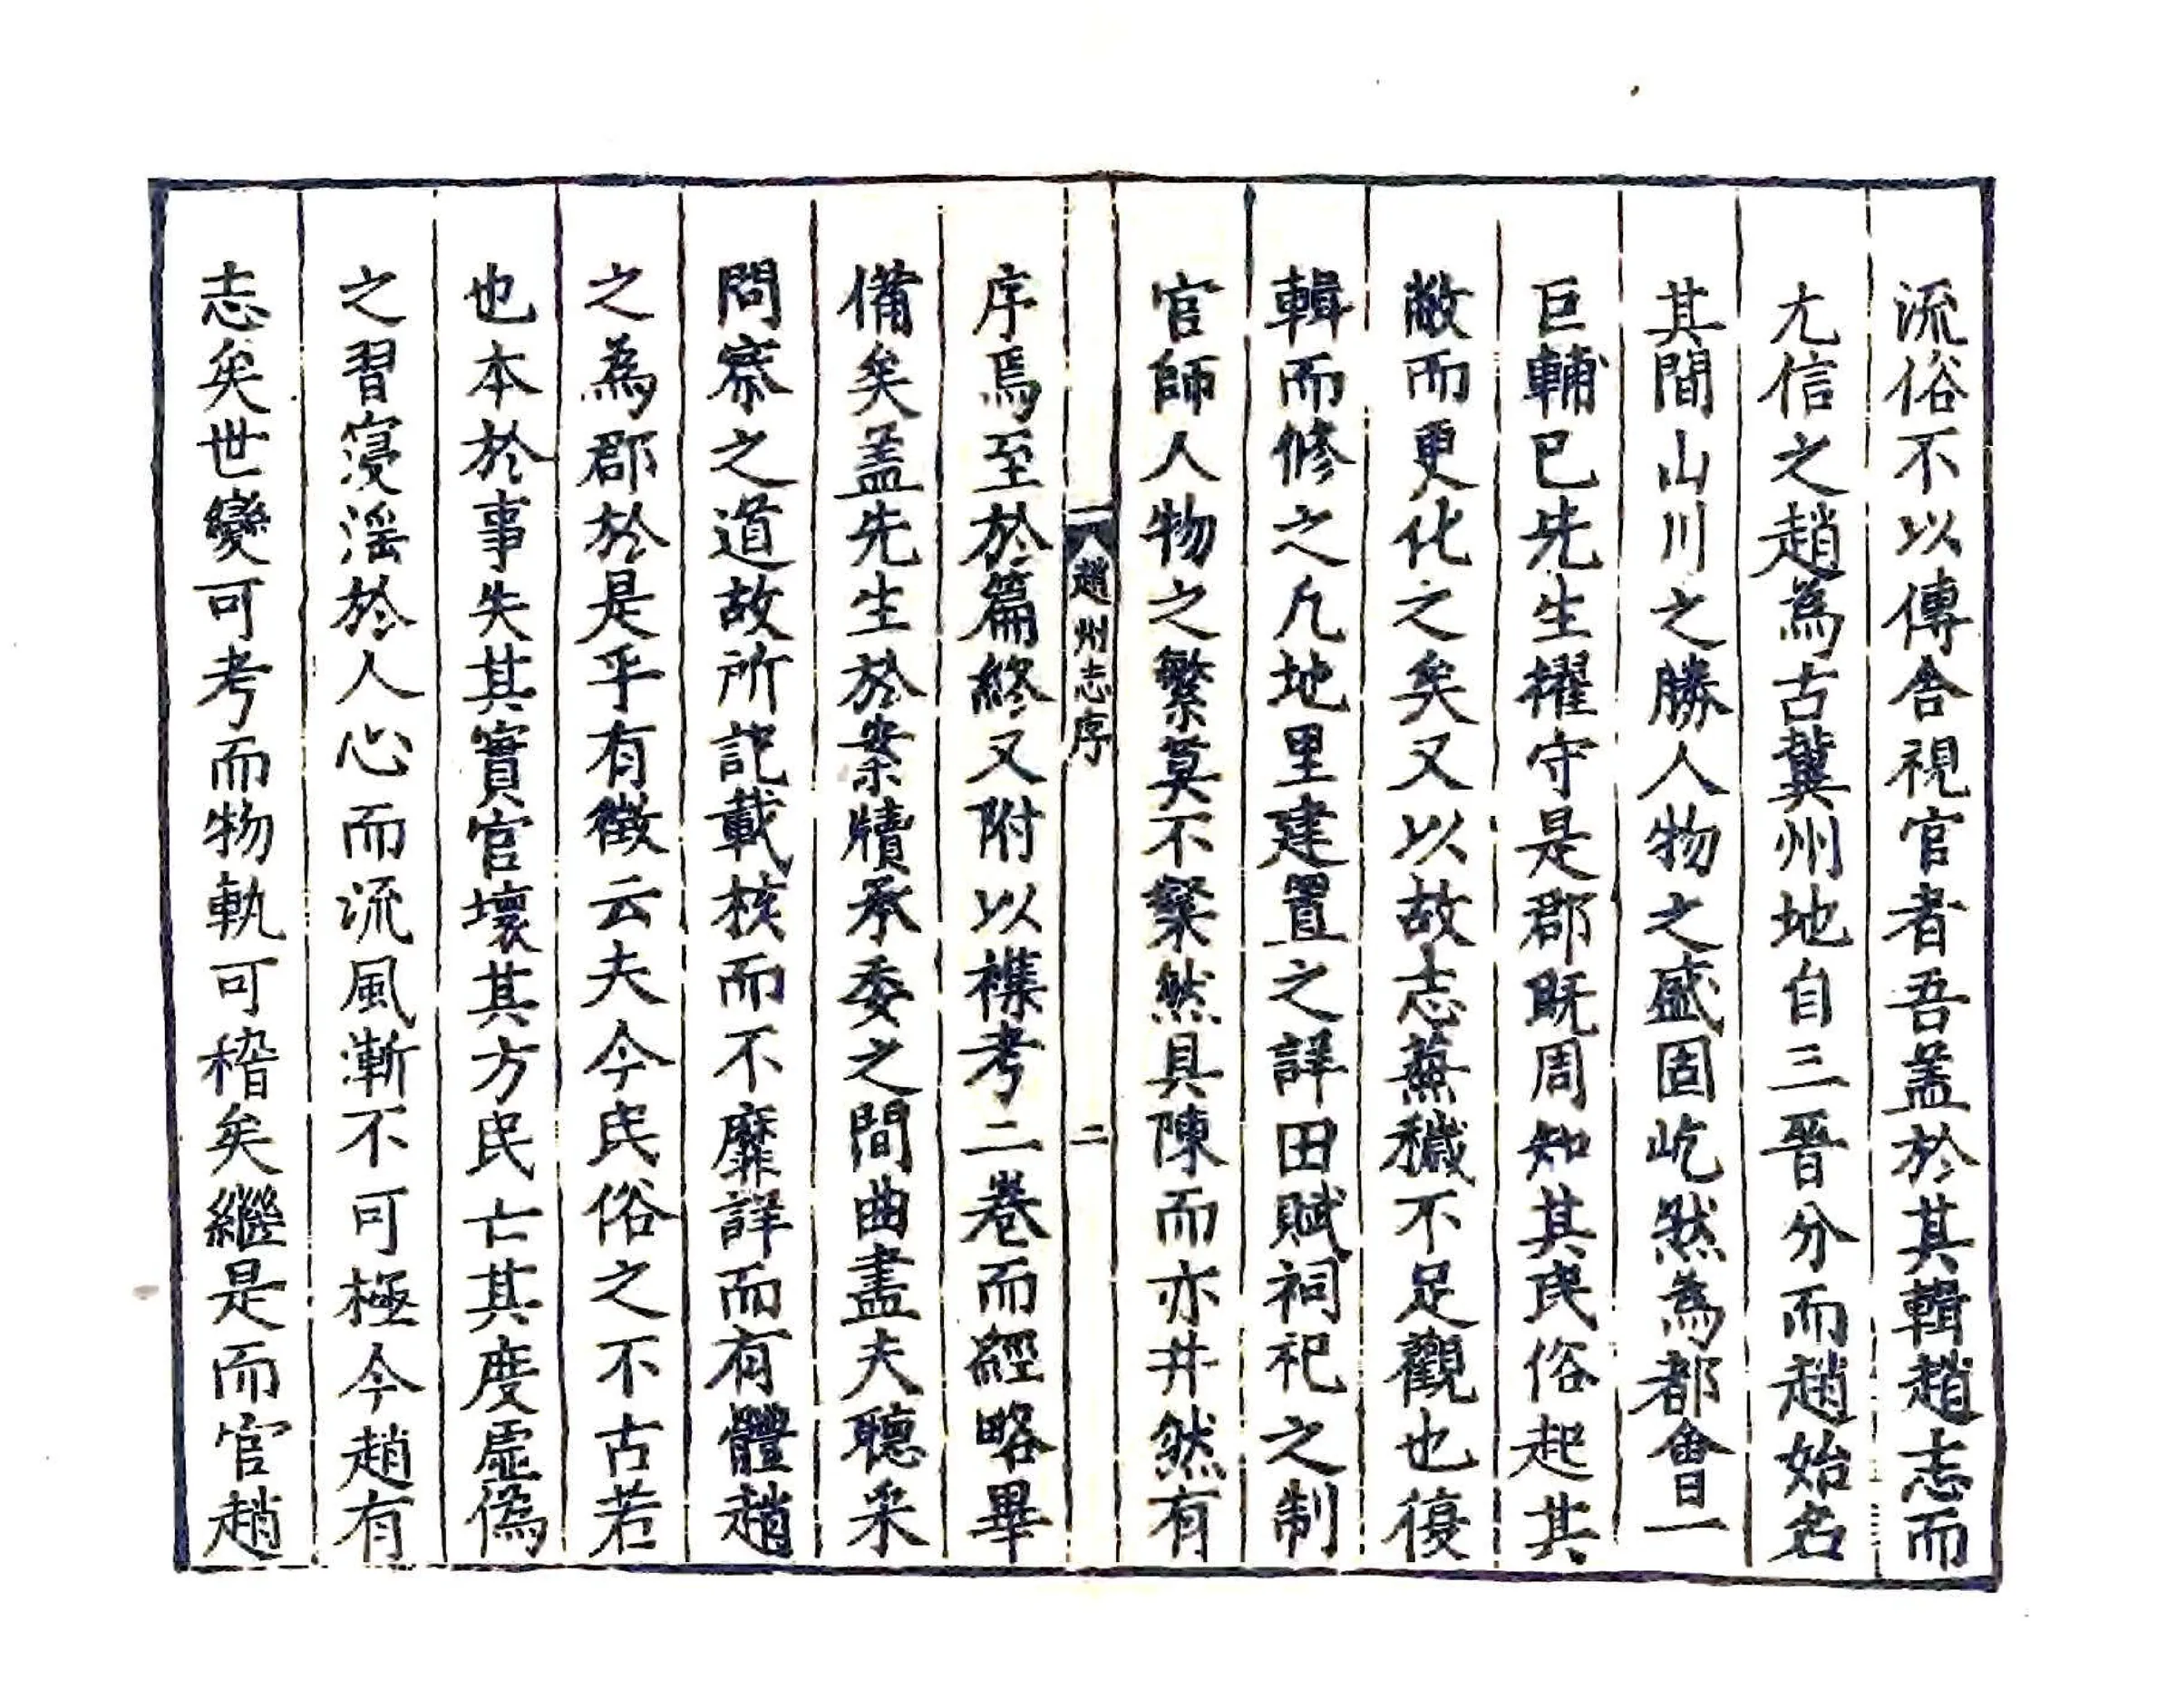 流俗不以傳舍視官者吾盖於其輯趙志而
尤信之趙為古冀州地自三晉分而趙始名
其間山川之勝人物之盛固屹然為都會一
巨輔已先生擢守是郡既周知其民俗起其
敝而更化之矣又以故志蕪穢不足觀也復
輯而修之凢地里建置之詳田賦祠祀之制
官師人物之繁莫不粲然具陳而亦井然有
趙州志序 二
序焉至於篇終又附以襍考二卷而經略畢
備矣盖先生於案牘承委之間曲盡夫聽采
問察之道故所記載核而不靡詳而有體趙
之為郡於是乎有徵云夫今民俗之不古若
也本於事失其實官壞其方民亡其度虛偽
之習寖淫於人心而流風漸不可極今趙有
志矣世變可考而物軌可稽矣繼是而官趙